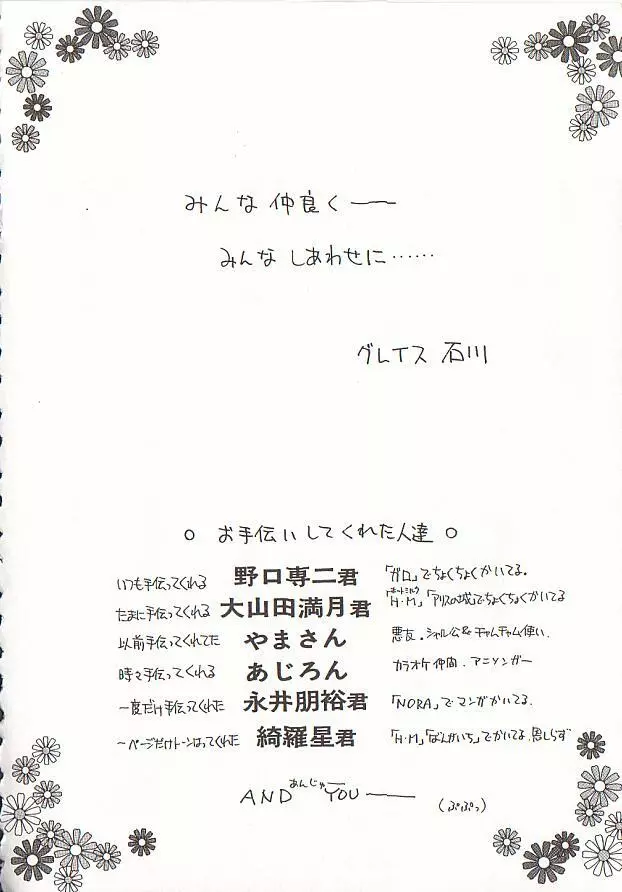 みんな 仲良く——
みんな しあわせに……
グレイス 石川
○ お手伝いしてくれた人達 ○
いつも手伝ってくれる 野口専二君 「ガロ」でちょくちょくかいてる。
たまに手伝ってくれる 大山田満月君 「H・M」「アリスの城」でちょくちょくかいてる
以前手伝ってくれてた やまさん 悪友。シャル公&チャムチャム使い。
時々手伝ってくれる あじろん カラオケ仲間。アニソンガー
一度だけ手伝ってくれた 永井朋裕君 「NORA」でマンガかいてる。
一ページだけトーンはってくれた 綺羅星君 「H・M」「ばんがいち」でかいてる。恩しらず
あんじゅー
AND YOU—— (ぷぷっ)